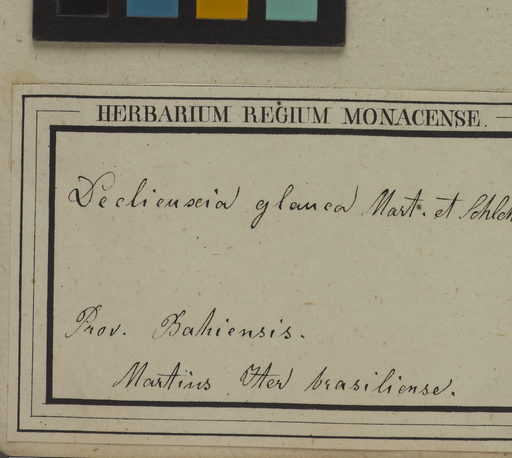 HERBARIUM REGIUM MONACENSE.
Declieuxia glauca Mart. et Schlch
Prov. Bahiensis.
Martius Iter brasiliense.